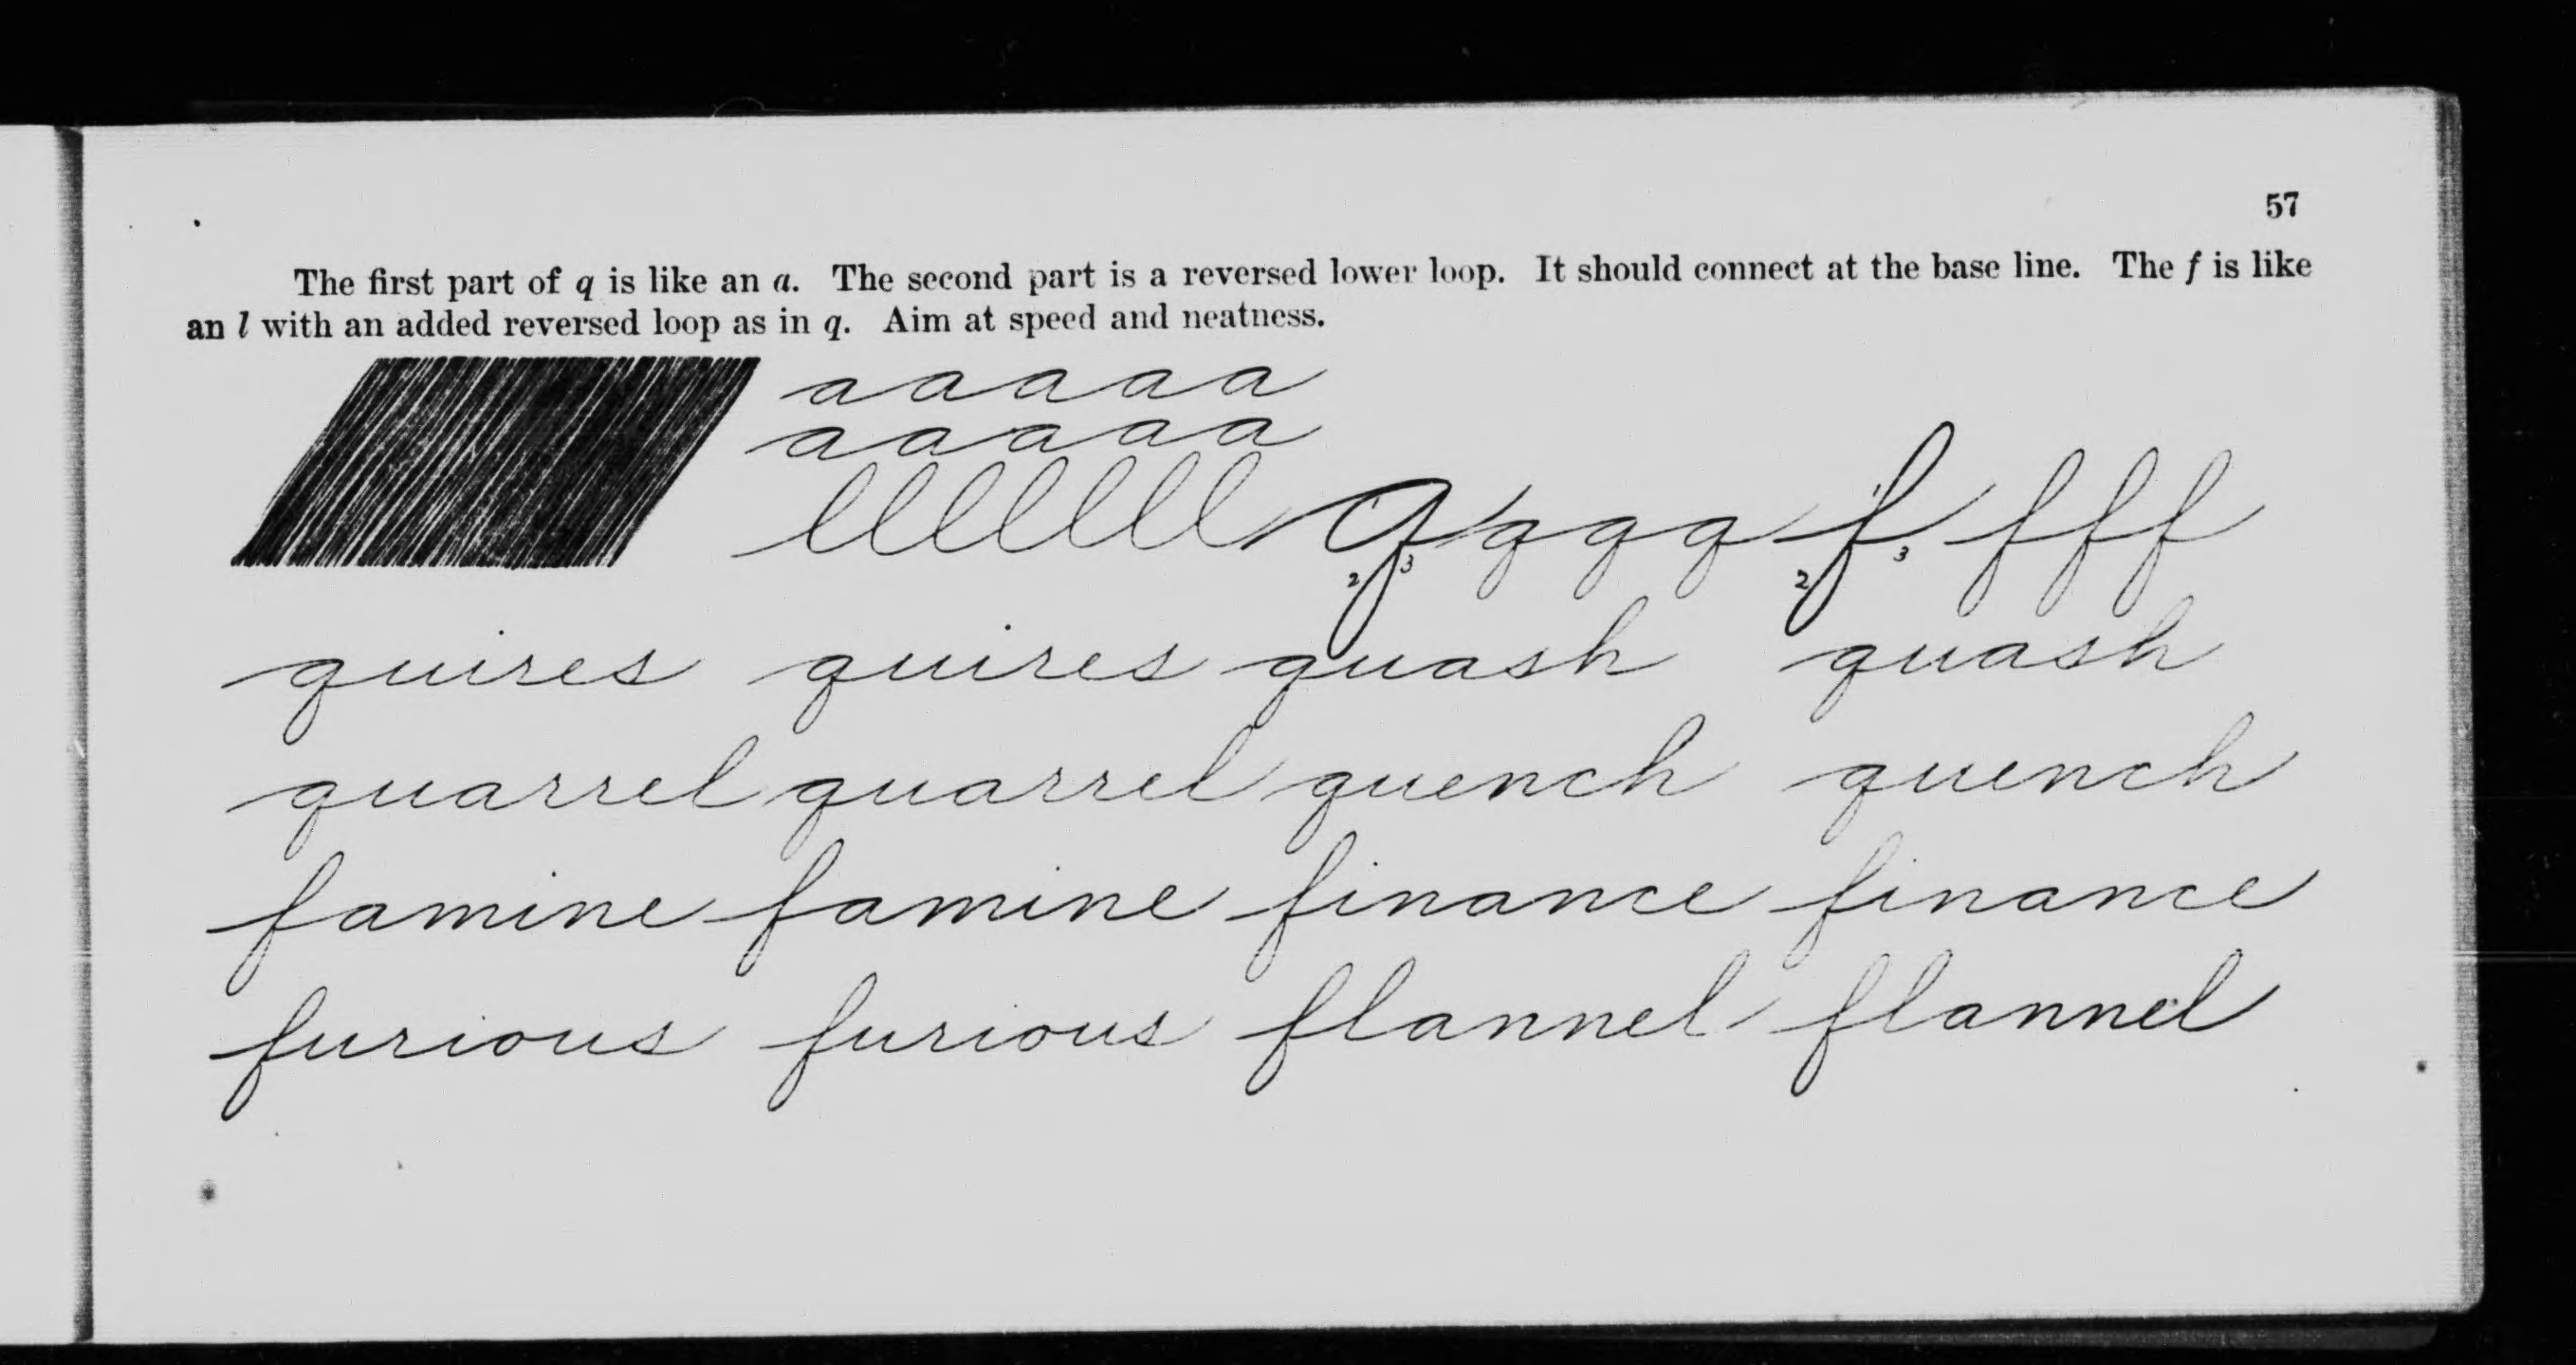 57
The first part of q is like an a. The second part is a reversed lower loop. It should connect at the base line. The f is like
an l with an added reversed loop as in q. Aim at speed and neatness.
a a a a a
a a a a a
l l l l l l l q q q q f f f f
1 2 3 1 2 3
quires quires quash quash
quarrel quarrel quench quench
famine famine finance finance
furious furious flannel flannel